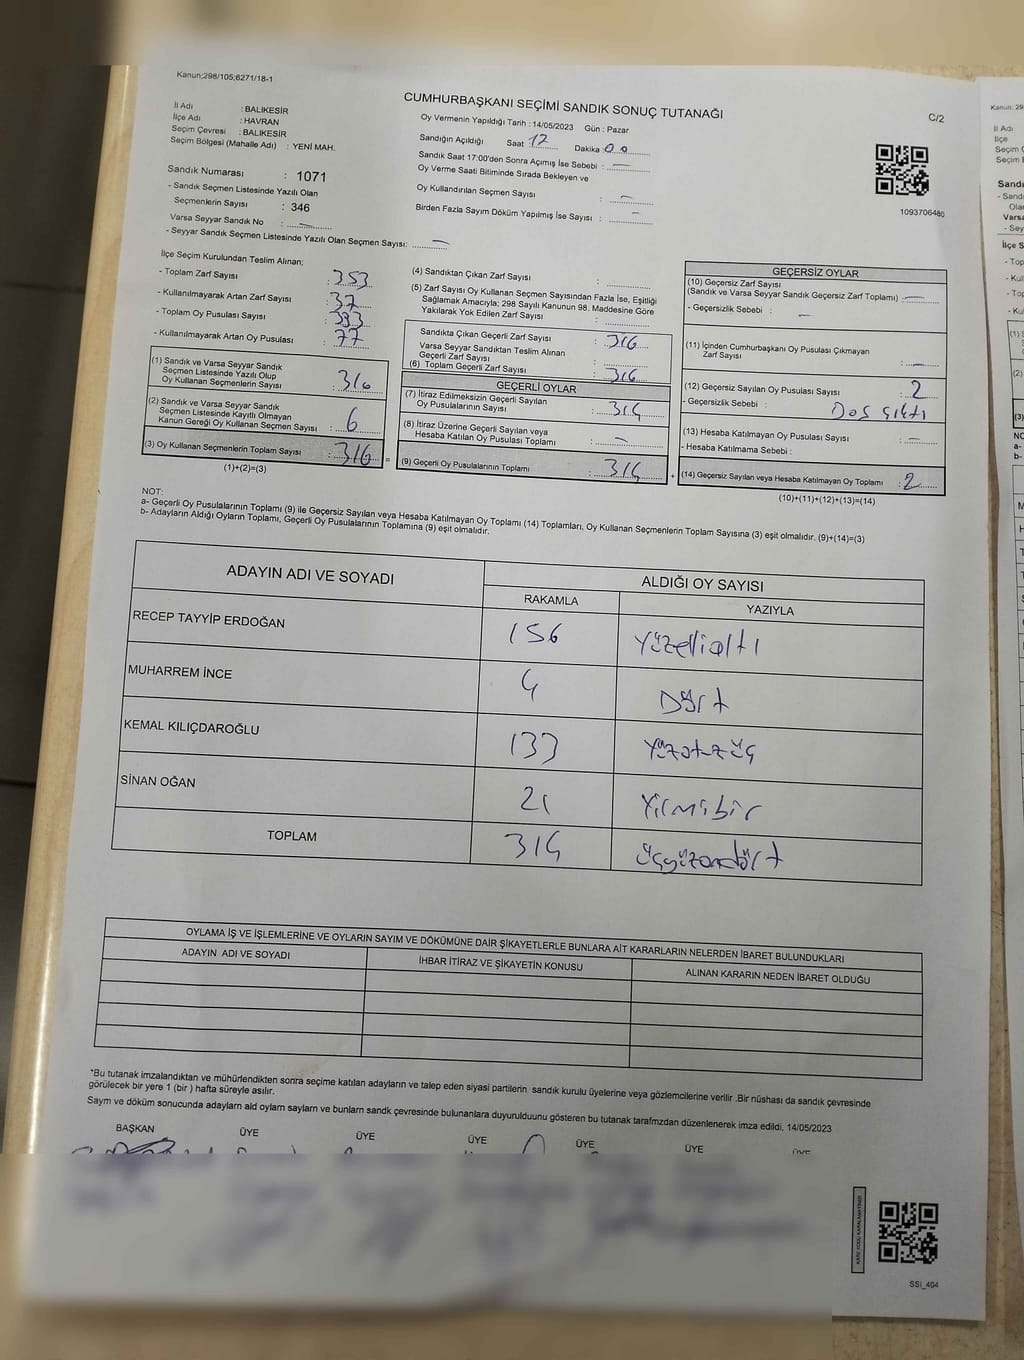 Kanun;298/105;6271/18-1
CUMHURBAŞKANI SEÇİMİ SANDIK SONUÇ TUTANAĞI
C/2
İl Adı : BALIKESİR
İlçe Adı : HAVRAN
Seçim Çevresi : BALIKESİR
Seçim Bölgesi (Mahalle Adı) : YENİ MAH.
Sandık Numarası : 1071
- Sandık Seçmen Listesinde Yazılı Olan
Seçmenlerin Sayısı : 346
Varsa Seyyar Sandık No : —
- Seyyar Sandık Seçmen Listesinde Yazılı Olan Seçmen Sayısı: —
Oy Vermenin Yapıldığı Tarih : 14/05/2023 Gün : Pazar
Sandığın Açıldığı Saat : 17 Dakika 00
Sandık Saat 17:00'den Sonra Açımış İse Sebebi : —
Oy Verme Saati Bitiminde Sırada Bekleyen ve
Oy Kullandırılan Seçmen Sayısı : —
Birden Fazla Sayım Döküm Yapılmış İse Sayısı : —
1093706480
İlçe Seçim Kurulundan Teslim Alınan;
- Toplam Zarf Sayısı : 353
- Kullanılmayarak Artan Zarf Sayısı : 37
- Toplam Oy Pusulası Sayısı : 393
- Kullanılmayarak Artan Oy Pusulası : 77
(1) Sandık ve Varsa Seyyar Sandık
Seçmen Listesinde Yazılı Olup
Oy Kullanan Seçmenlerin Sayısı : 310
(2) Sandık ve Varsa Seyyar Sandık
Seçmen Listesinde Kayıtlı Olmayan
Kanun Gereği Oy Kullanan Seçmen Sayısı : 6
(3) Oy Kullanan Seçmenlerin Toplam Sayısı : 316
(1)+(2)=(3)
(4) Sandıktan Çıkan Zarf Sayısı :
(5) Zarf Sayısı Oy Kullanan Seçmen Sayısından Fazla İse, Eşitliği
Sağlamak Amacıyla; 298 Sayılı Kanunun 98. Maddesine Göre
Yakılarak Yok Edilen Zarf Sayısı :
Sandıkta Çıkan Geçerli Zarf Sayısı : 316
Varsa Seyyar Sandıktan Teslim Alınan
Geçerli Zarf Sayısı :
(6) Toplam Geçerli Zarf Sayısı : 316
GEÇERLİ OYLAR
(7) İtiraz Edilmeksizin Geçerli Sayılan
Oy Pusulalarının Sayısı : 314
(8) İtiraz Üzerine Geçerli Sayılan veya
Hesaba Katılan Oy Pusulası Toplamı : —
(9) Geçerli Oy Pusulalarının Toplamı : 314
GEÇERSİZ OYLAR
(10) Geçersiz Zarf Sayısı
(Sandık ve Varsa Seyyar Sandık Geçersiz Zarf Toplamı) : —
- Geçersizlik Sebebi : —
(11) İçinden Cumhurbaşkanı Oy Pusulası Çıkmayan
Zarf Sayısı : —
(12) Geçersiz Sayılan Oy Pusulası Sayısı : 2
- Geçersizlik Sebebi : Boş çıktı
(13) Hesaba Katılmayan Oy Pusulası Sayısı : —
- Hesaba Katılmama Sebebi :
(14) Geçersiz Sayılan veya Hesaba Katılmayan Oy Toplamı : 2
(10)+(11)+(12)+(13)=(14)
NOT:
a- Geçerli Oy Pusulalarının Toplamı (9) ile Geçersiz Sayılan veya Hesaba Katılmayan Oy Toplamı (14) Toplamları, Oy Kullanan Seçmenlerin Toplam Sayısına (3) eşit olmalıdır. (9)+(14)=(3)
b- Adayların Aldığı Oyların Toplamı, Geçerli Oy Pusulalarının Toplamına (9) eşit olmalıdır.
ADAYIN ADI VE SOYADI
ALDIĞI OY SAYISI
RAKAMLA YAZIYLA
RECEP TAYYİP ERDOĞAN 156 Yüzellialtı
MUHARREM İNCE 4 Dört
KEMAL KILIÇDAROĞLU 133 Yüzotuzüç
SİNAN OĞAN 21 Yirmibir
TOPLAM 314 Üçyüzondört
OYLAMA İŞ VE İŞLEMLERİNE VE OYLARIN SAYIM VE DÖKÜMÜNE DAİR ŞİKAYETLERLE BUNLARA AİT KARARLARIN NELERDEN İBARET BULUNDUKLARI
ADAYIN ADI VE SOYADI
İHBAR İTİRAZ VE ŞİKAYETİN KONUSU
ALINAN KARARIN NEDEN İBARET OLDUĞU
*Bu tutanak imzalandıktan ve mühürlendikten sonra seçime katılan adayların ve talep eden siyasi partilerin sandık kurulu üyelerine veya gözlemcilerine verilir .Bir nüshası da sandık çevresinde
görülecek bir yere 1 (bir ) hafta süreyle asılır.
Saym ve döküm sonucunda adaylarn ald oylarn saylarn ve bunlarn sandk çevresinde bulunanlara duyurulduunu gösteren bu tutanak tarafmzdan düzenlenerek imza edildi. 14/05/2023
BAŞKAN ÜYE ÜYE ÜYE ÜYE ÜYE ÜYE
SSİ_404